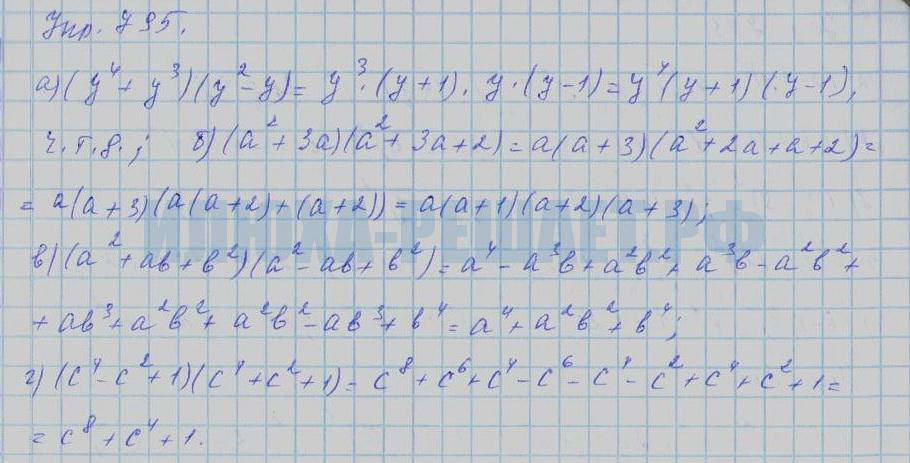 Упр. 795.
а) (y⁴ + y³)(y² - y) = y³·(y + 1)·y·(y - 1) = y⁴(y + 1)(y - 1),
ч.т.д.; б) (a² + 3a)(a² + 3a + 2) = a(a + 3)(a² + 2a + a + 2) =
= a(a + 3)(a(a + 2) + (a + 2)) = a(a + 1)(a + 2)(a + 3);
ИЛЮХА-РЕШАЕТ.РФ
в) (a² + ab + b²)(a² - ab + b²) = a⁴ - a³b + a²b² + a³b - a²b² +
+ ab³ + a²b² + a²b² - ab³ + b⁴ = a⁴ + a²b² + b⁴;
г) (c⁴ - c² + 1)(c⁴ + c² + 1) = c⁸ + c⁶ + c⁴ - c⁶ - c⁴ - c² + c⁴ + c² + 1 =
= c⁸ + c⁴ + 1.